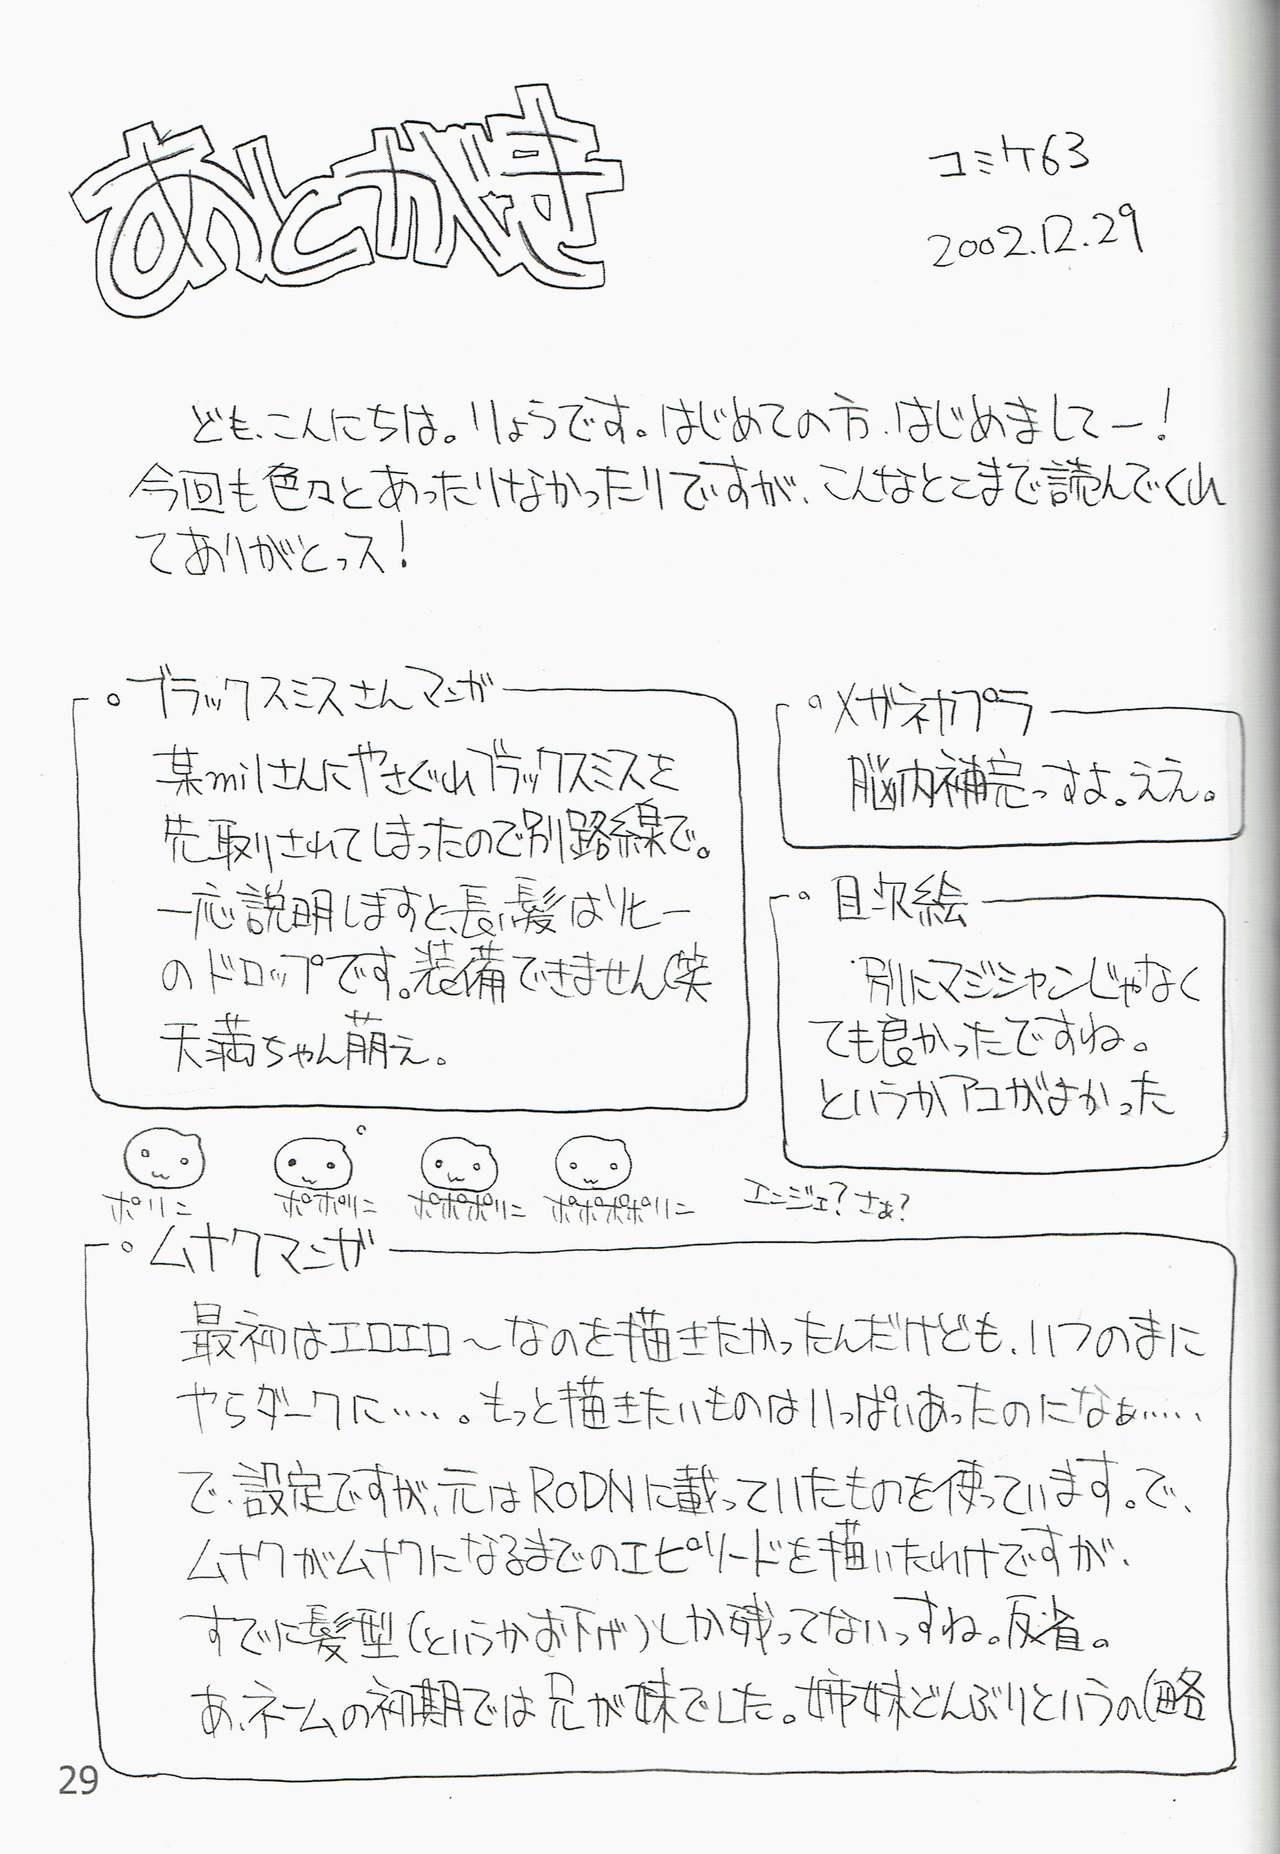 あとがき
コミケ63
2002.12.29
ども、こんにちは。りょうです。はじめての方、はじめましてー！
今回も色々とあったりなかったりですが、こんなとこまで読んでくれ
てありがとっス！
・ブラックスミスさんマンガ
某milさんにやさぐれブラックスミスを
先取りされてしまったので別路線で。
一応説明しますと、長い髪はソヒー
のドロップです。装備できません(笑
天満ちゃん萌え。
・メガネカプラ
脳内補完っすよ。ええ。
・目次絵
別にマジシャンじゃなく
ても良かったですね。
というかアコがよかった
ポリン
ポポリン
ポポポリン
ポポポポリン
エンジェ？さぁ？
・ムナクマンガ
最初はエロエロ～なのを描きたかったんだけども、いつのまに
やらダークに……。もっと描きたいものはいっぱいあったのになぁ……
で、設定ですが、元はRODNに載っていたものを使っています。で、
ムナクがムナクになるまでのエピソードを描いたわけですが、
すでに髪型(というかお下げ)しか残ってないっすね。反省。
あ、ネームの初期では兄が妹でした。姉妹どんぶりというの(略
29